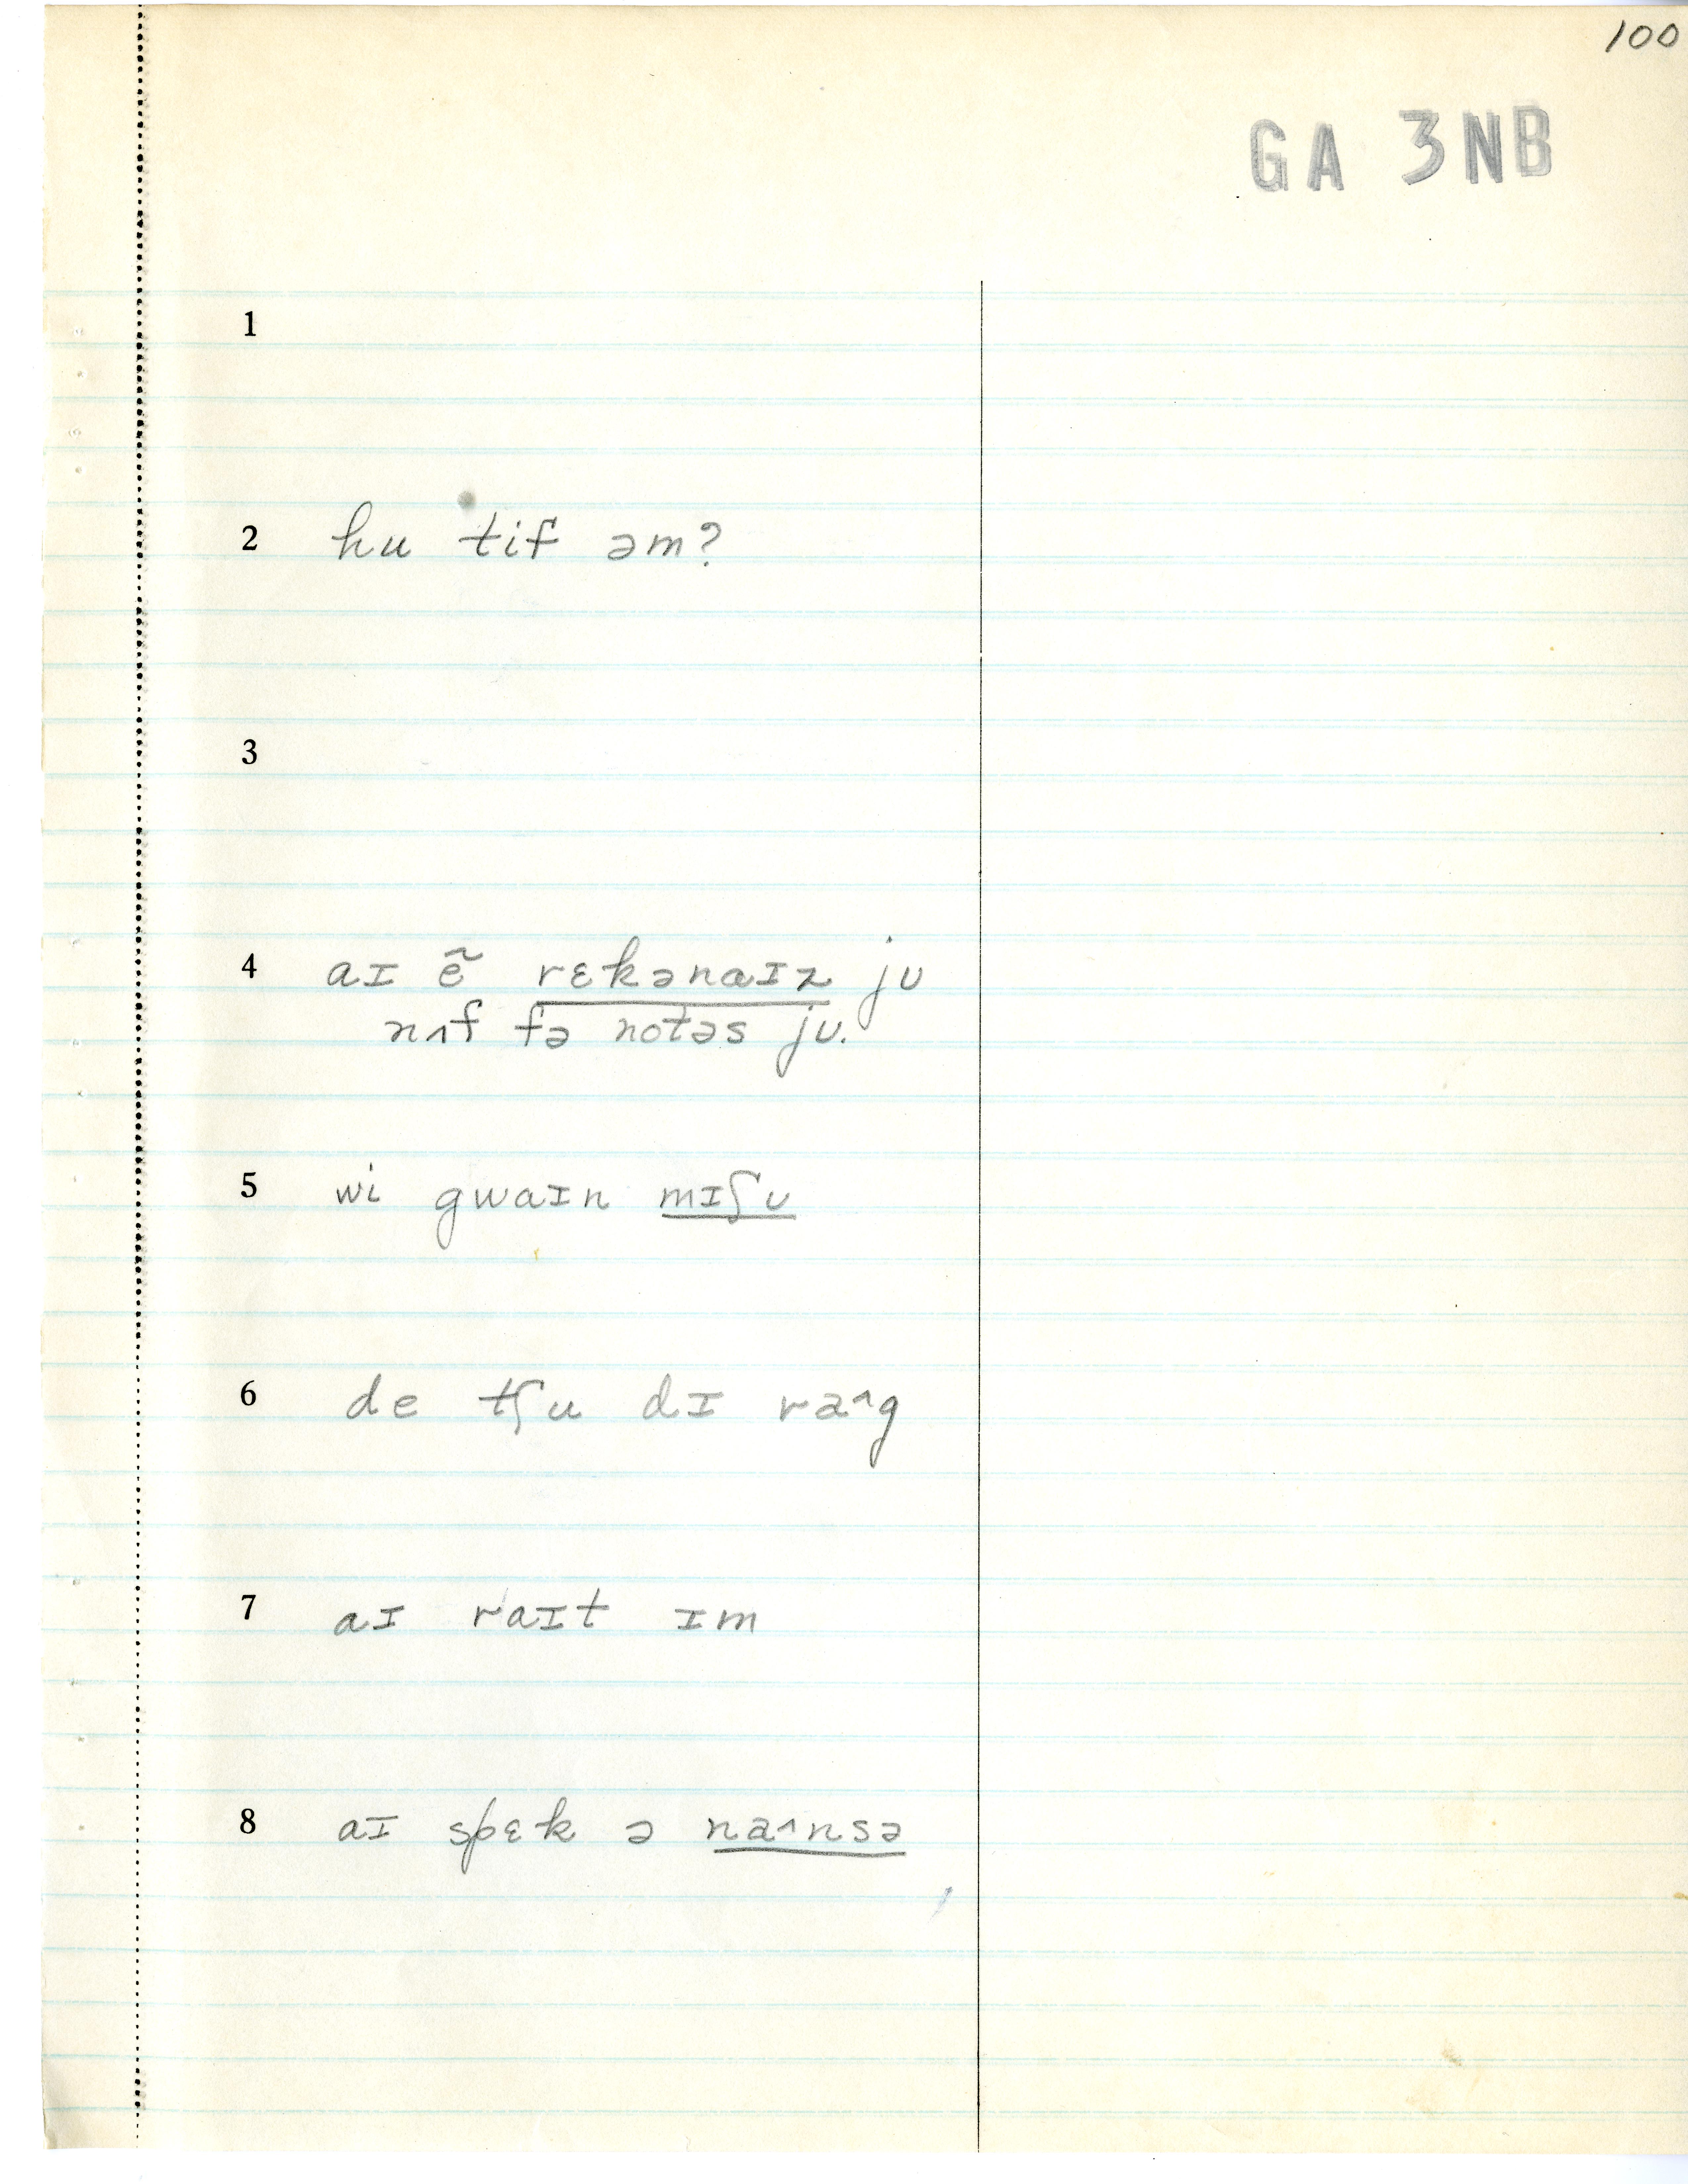 100
GA 3NB
1
2 hu tif əm?
3
4 aɪ ẽ rɛkənaɪz jʊ
nʌf fə notəs jʊ.
5 wi gwaɪn mɪʃʊ
6 de tʃu dɪ raᶺg
7 aɪ raɪt ɪm
8 aɪ spɛk ə naᶺnsə